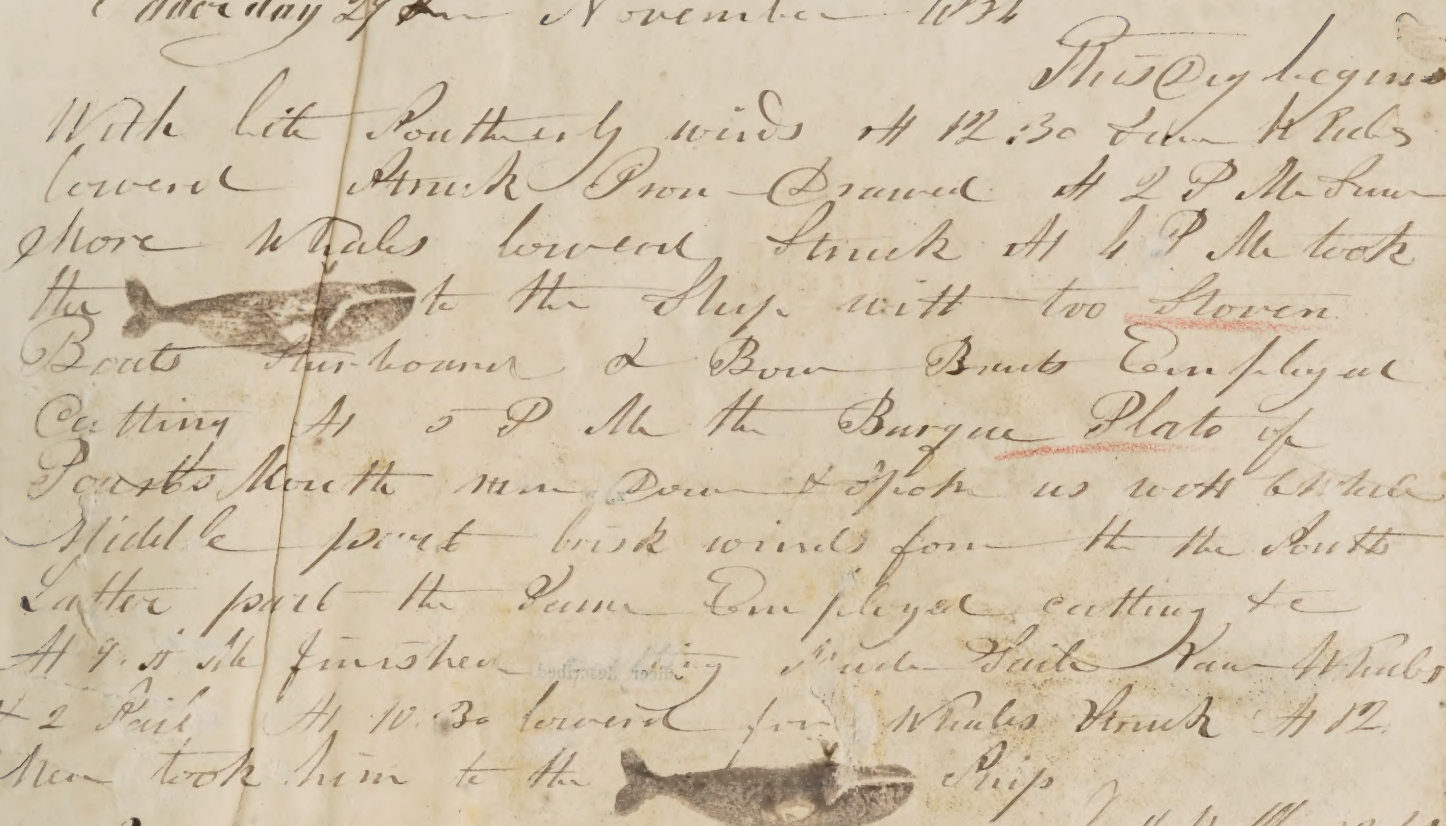 Saterday 29 November 183
This Day begins
With lite Southerly winds At 12.30 Saw Whales
lowerd Struck Iron Drawed At 2 P M Saw
More Whales lowerd Struck At 4 P M took
the to the Ship with too Stoven
Boats Starboard & Bow Boats Employed
Cutting At 5 P M the Barque Plato of
Mouth run Down & Spoke us with
Middle part brisk winds fom the the South
Latter part the Same Employed cutting &c
At 9 A M finished made Saile Saw Whales
& 2 Sail At 10.30 lowerd for Whales Struck At 12
took him to the Ship